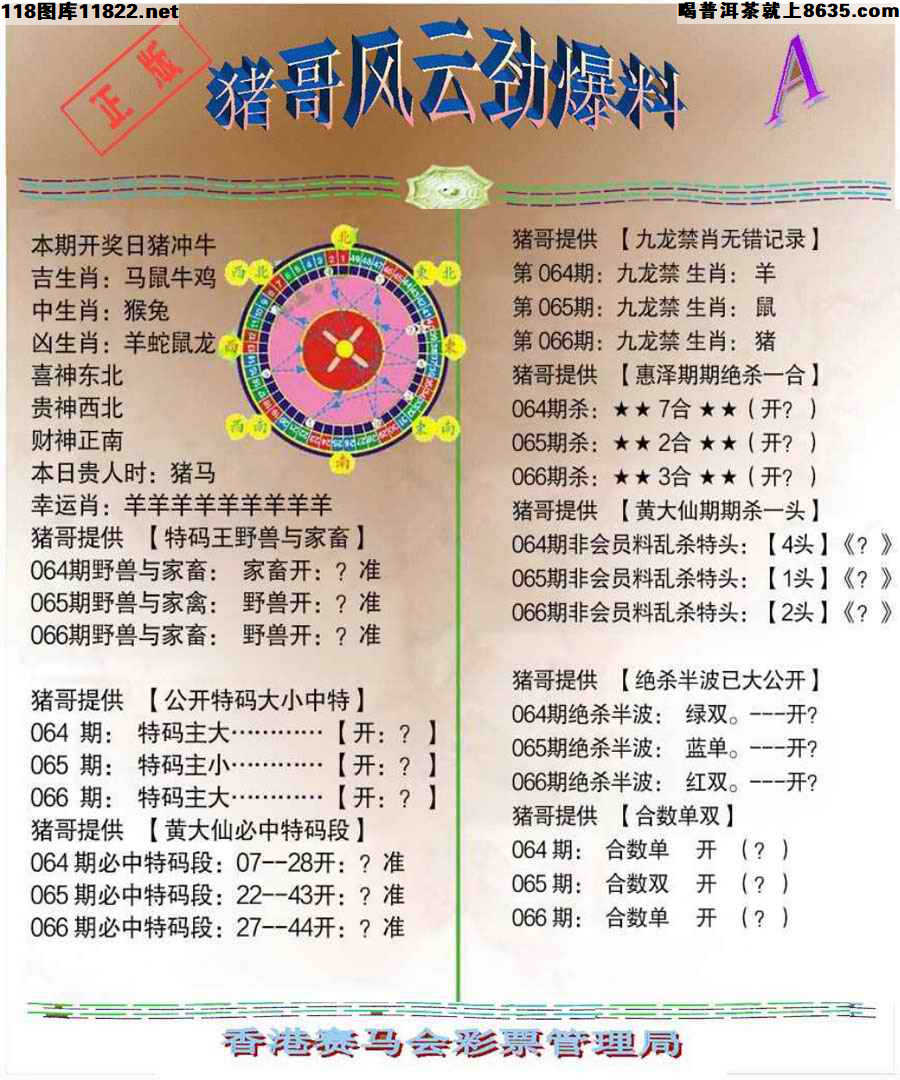 118图库11822.net
喝普洱茶就上8635.com
正版
猪哥风云劲爆料
A
本期开奖日猪冲牛
吉生肖：马鼠牛鸡
中生肖：猴兔
凶生肖：羊蛇鼠龙
喜神东北
贵神西北
财神正南
本日贵人时：猪马
幸运肖：羊羊羊羊羊羊羊羊羊
北
西北
东北
西
东
西南
东南
南
猪哥提供 【特码王野兽与家畜】
064期野兽与家畜： 家畜开：？准
065期野兽与家禽： 野兽开：？准
066期野兽与家畜： 野兽开：？准
猪哥提供 【公开特码大小中特】
064 期： 特码主大…………【开：？】
065 期： 特码主小…………【开：？】
066 期： 特码主大…………【开：？】
猪哥提供 【黄大仙必中特码段】
064期必中特码段：07--28开：？准
065期必中特码段：22--43开：？准
066期必中特码段：27--44开：？准
猪哥提供 【九龙禁肖无错记录】
第064期：九龙禁 生肖：羊
第065期：九龙禁 生肖：鼠
第066期：九龙禁 生肖：猪
猪哥提供 【惠泽期期绝杀一合】
064期杀：★★7合★★（开？）
065期杀：★★2合★★（开？）
066期杀：★★3合★★（开？）
猪哥提供 【黄大仙期期杀一头】
064期非会员料乱杀特头：【4头】《？》
065期非会员料乱杀特头：【1头】《？》
066期非会员料乱杀特头：【2头】《？》
猪哥提供 【绝杀半波已大公开】
064期绝杀半波： 绿双。---开?
065期绝杀半波： 蓝单。---开?
066期绝杀半波： 红双。---开?
猪哥提供 【合数单双】
064期： 合数单 开 （？）
065期： 合数双 开 （？）
066期： 合数单 开 （？）
香港赛马会彩票管理局